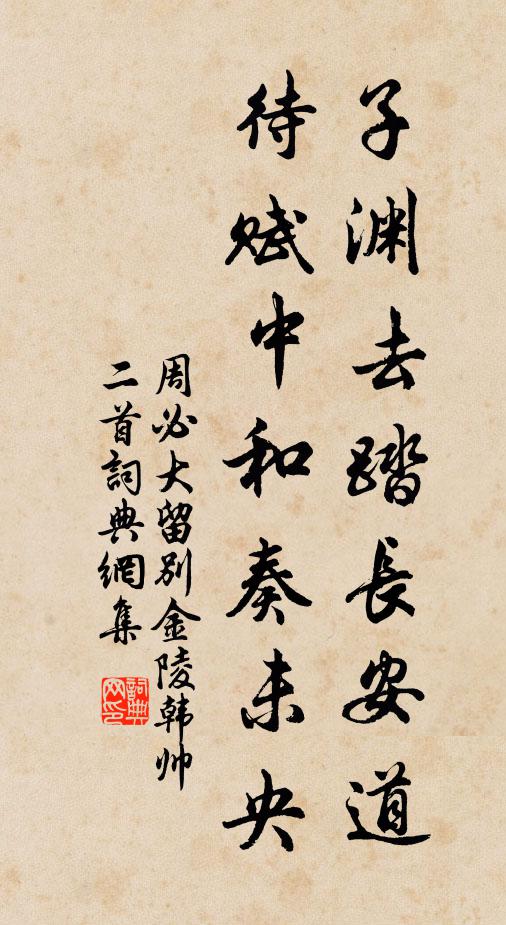 子渊去踏長安道
待赋中和奏未央
周必大留别金陵韩帅
二首詞典網集
詞典
网印